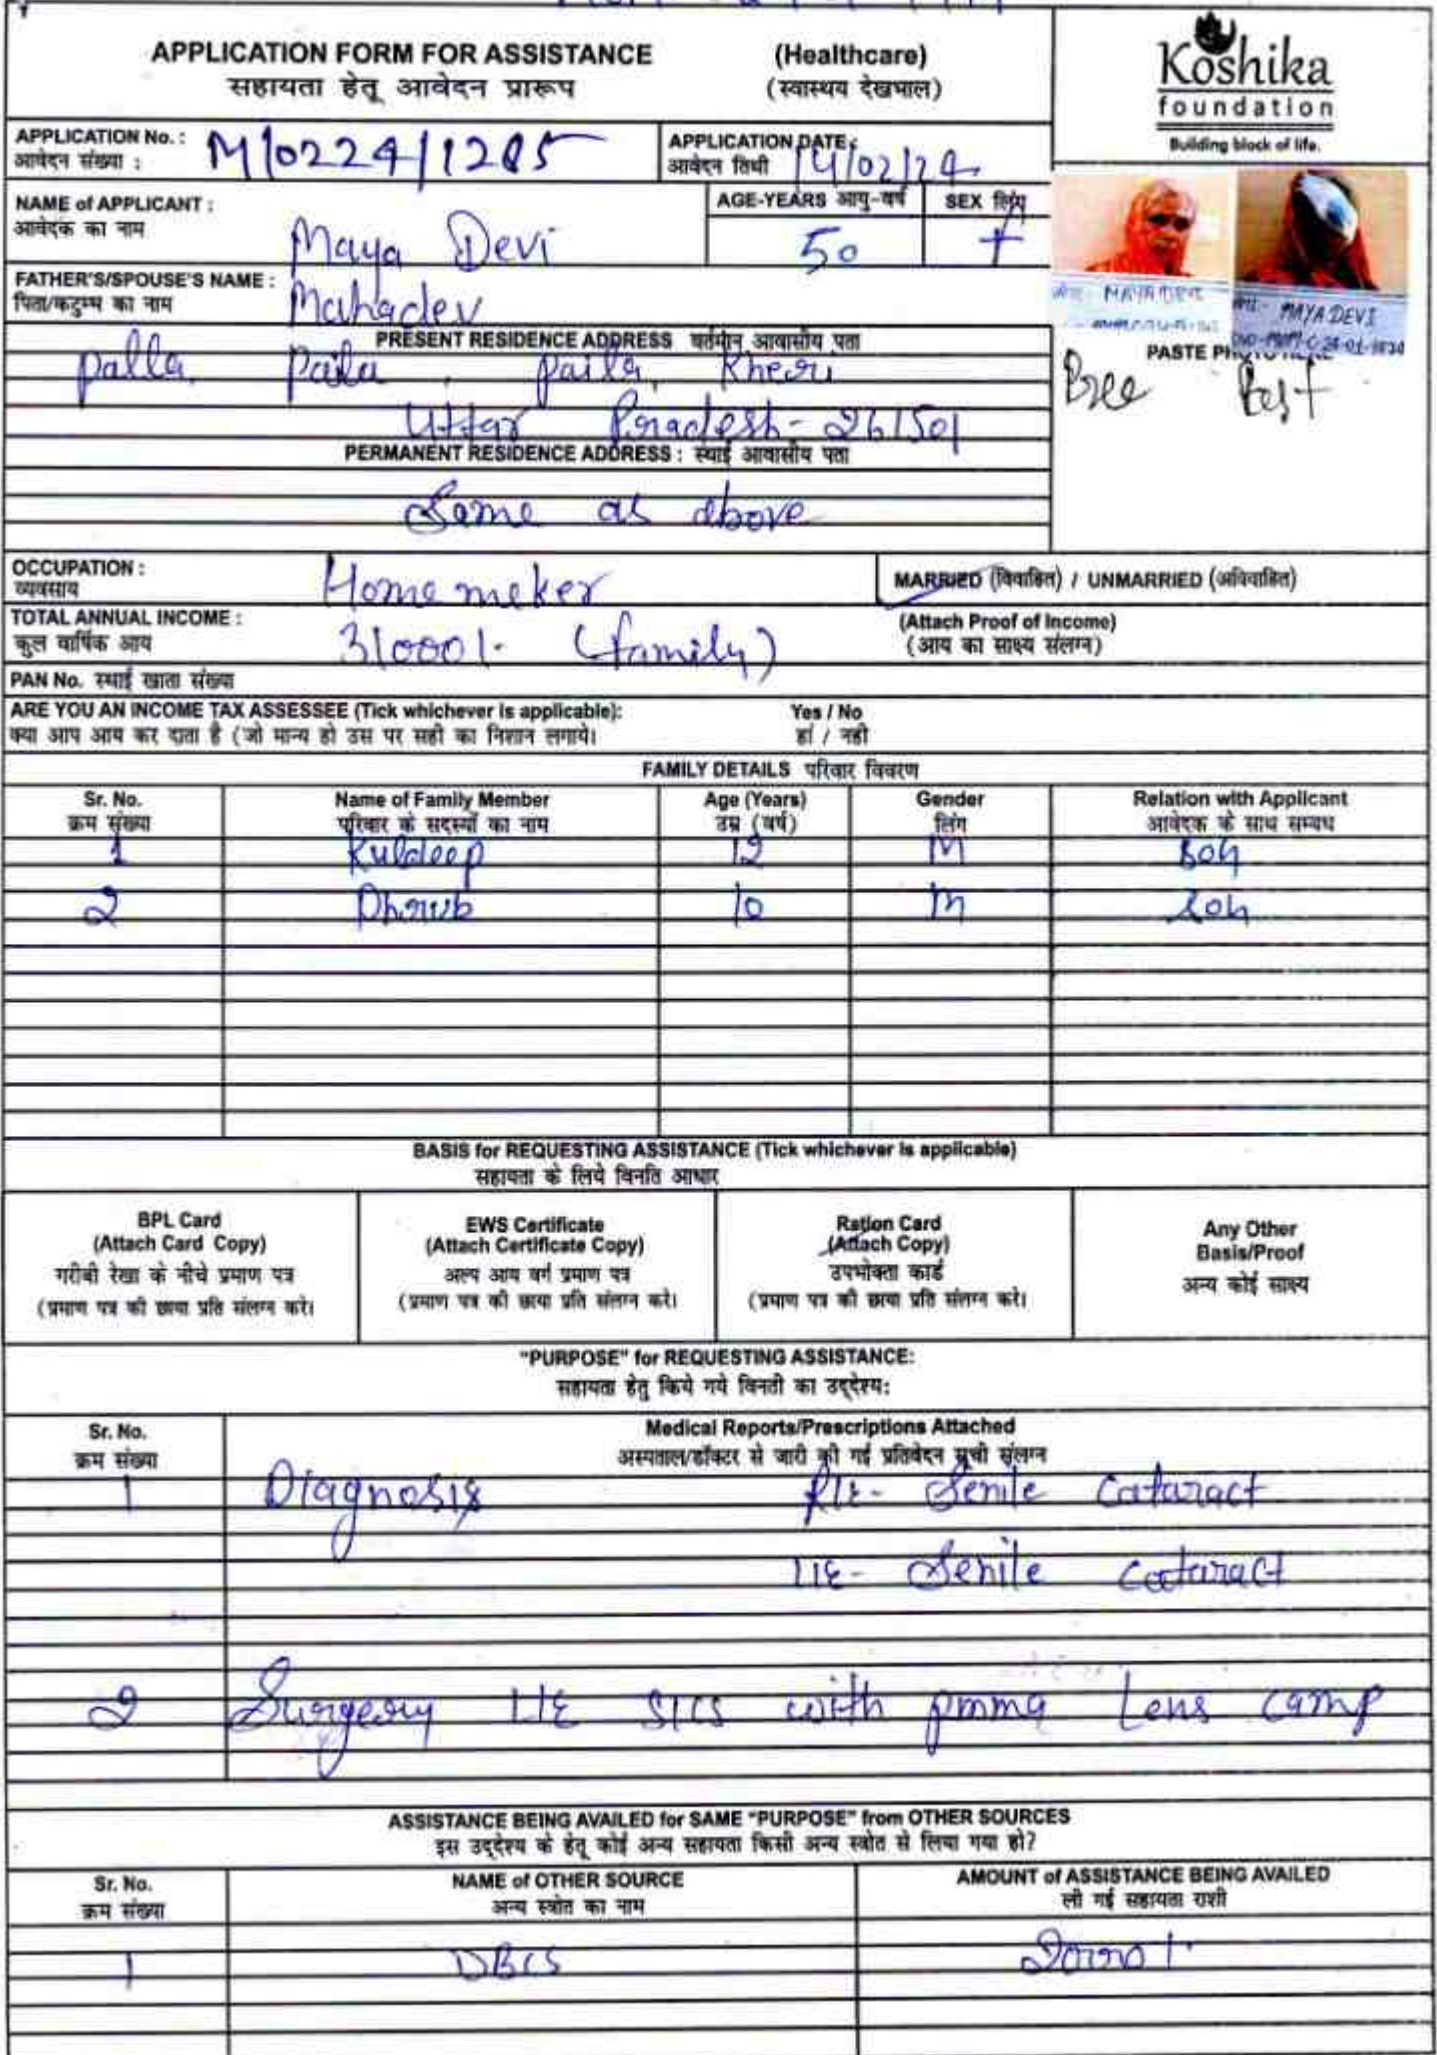 APPLICATION FORM FOR ASSISTANCE (Healthcare)
सहायता हेतू आवेदन प्रारूप (स्वास्थय देखभाल)
Koshika
foundation
Building block of life.
APPLICATION No. : M/0224/1285
आवेदन संख्या :
APPLICATION DATE : 14/02/24
आवेदन तिथी
NAME of APPLICANT : Maya Devi
आवेदक का नाम
AGE-YEARS आयु-वर्ष 50
SEX लिंग F
FATHER'S/SPOUSE'S NAME : Mahadev
पिता/कटुम्ब का नाम
MAYA DEVI
MAYA DEVI
PASTE PHOTO HERE
Pree Post
PRESENT RESIDENCE ADDRESS वर्तमान आवासीय पता
Palla, Paila, Paila, Kheri
Uttar Pradesh - 261501
PERMANENT RESIDENCE ADDRESS : स्थाई आवासीय पता
Same as above
OCCUPATION : Home meker
व्यवसाय
MARRIED (विवाहित) / UNMARRIED (अविवाहित)
TOTAL ANNUAL INCOME : 31000/- (family)
कुल वार्षिक आय
(Attach Proof of Income)
(आय का साक्ष्य संलग्न)
PAN No. स्थाई खाता संख्या
ARE YOU AN INCOME TAX ASSESSEE (Tick whichever is applicable): Yes / No
क्या आप आय कर दाता है (जो मान्य हो उस पर सही का निशान लगाये। हां / नही
FAMILY DETAILS परिवार विवरण
Sr. No. Name of Family Member Age (Years) Gender Relation with Applicant
क्रम संख्या परिवार के सदस्यों का नाम उम्र (वर्ष) लिंग आवेदक के साथ सम्बध
1 Kuldeep 12 M Son
2 Dhrub 10 M Son
BASIS for REQUESTING ASSISTANCE (Tick whichever is applicable)
सहायता के लिये विनति आधार
BPL Card
(Attach Card Copy)
गरीबी रेखा के नीचे प्रमाण पत्र
(प्रमाण पत्र की छाया प्रति संलग्न करे।
EWS Certificate
(Attach Certificate Copy)
अल्प आय वर्ग प्रमाण पत्र
(प्रमाण पत्र की छाया प्रति संलग्न करे।
Ration Card
(Attach Copy)
उपभोक्ता कार्ड
(प्रमाण पत्र की छाया प्रति संलग्न करे।
Any Other
Basis/Proof
अन्य कोई साक्ष्य
"PURPOSE" for REQUESTING ASSISTANCE:
सहायता हेतु किये गये विनती का उद्देश्य:
Sr. No. Medical Reports/Prescriptions Attached
क्रम संख्या अस्पताल/डॉक्टर से जारी की गई प्रतिवेदन सूची संलग्न
1 Diagnosis R/E- Senile Cataract
L/E- Senile Cataract
2 Surgery L/E SICS with pmma Lens camp
ASSISTANCE BEING AVAILED for SAME "PURPOSE" from OTHER SOURCES
इस उद्देश्य के हेतू कोई अन्य सहायता किसी अन्य स्त्रोत से लिया गया हो?
Sr. No. NAME of OTHER SOURCE AMOUNT of ASSISTANCE BEING AVAILED
क्रम संख्या अन्य स्त्रोत का नाम ली गई सहायता राशी
1 DBCS